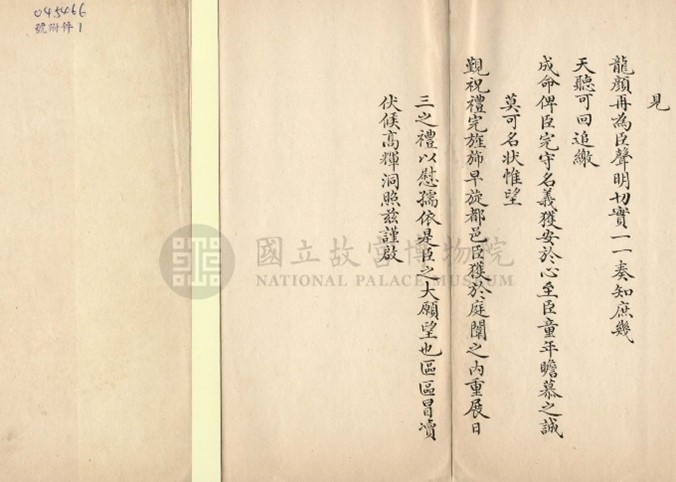 見
龍顏再為臣聲明切實一一奏知庶幾
天聽可回追繳
成命俾臣完守名義獲安於心至臣童年瞻慕之誠
莫可名狀惟望
覲祝禮完旌斾早旋都邑臣獲於庭闈之內重展日
三之禮以慰孺依是臣之大願望也區區冒瀆
伏候高輝洞照玆謹啟
045466
號附件1
國立故宮博物院
NATIONAL PALACE MUSEUM